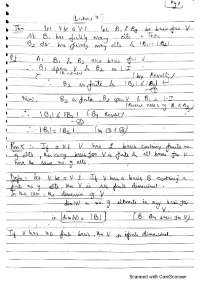 Pg 1
Lecture 7
Thm: Let V be a V.S. Let B₁, B₂ be bases for V.
If B₁ has finitely many elts. then
B₂ also has finitely many elts & |B₁| = |B₂|
Pf: As B₁ & B₂ are bases of V
B₁ spans V & B₂ is L.I
(by Result)
⇒ B₂ is finite & |B₂| ≤ |B₁|
Now, B₂ is finite, B₂ spans V & B₁ is L.I
⇒ |B₁| ≤ |B₂| (By Result)
∴ |B₁| = |B₂|
Rmk: If a V.S. V has 1 basis containing finite no.
of elts, then every basis for V is finite & all bases for V
have the same no. of elts.
Defn: Let V be a V.S. If V has a basis B consisting a
finite no. of elts, then V is finite dimensional.
In this case, the dimension of V
dim(V) = no. of elements in any basis for V
ie dim(V) = |B| [B any basis for V]
If V has no finite basis, then V is infinite dimensional.
Scanned with CamScanner